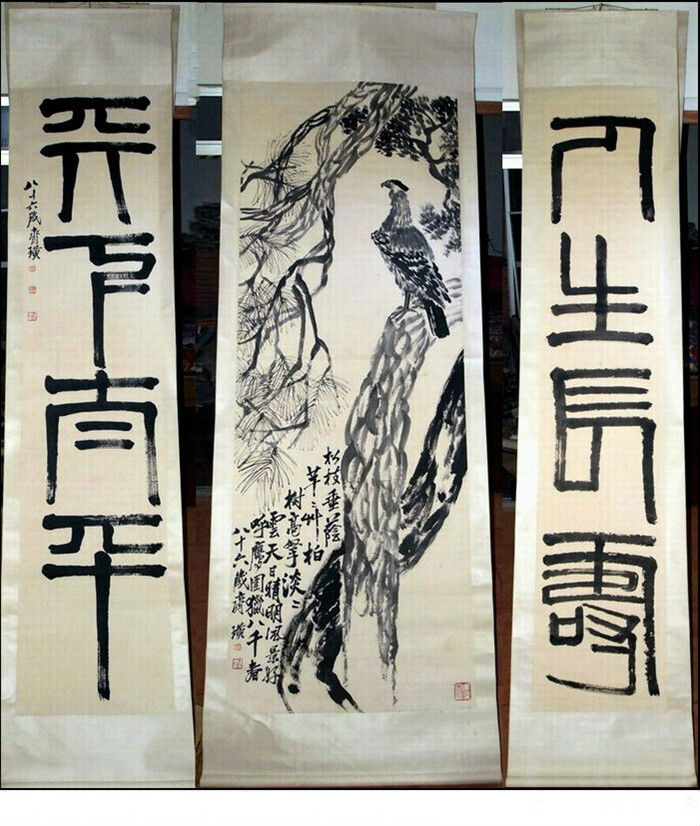 人生長壽
松枝垂蔭
芊〻艸柏
樹高擎淡〻
雲天日晴明風景好
呼鷹圍獵八千
八十六歲齊璜
天下太平
八十六歲齊璜